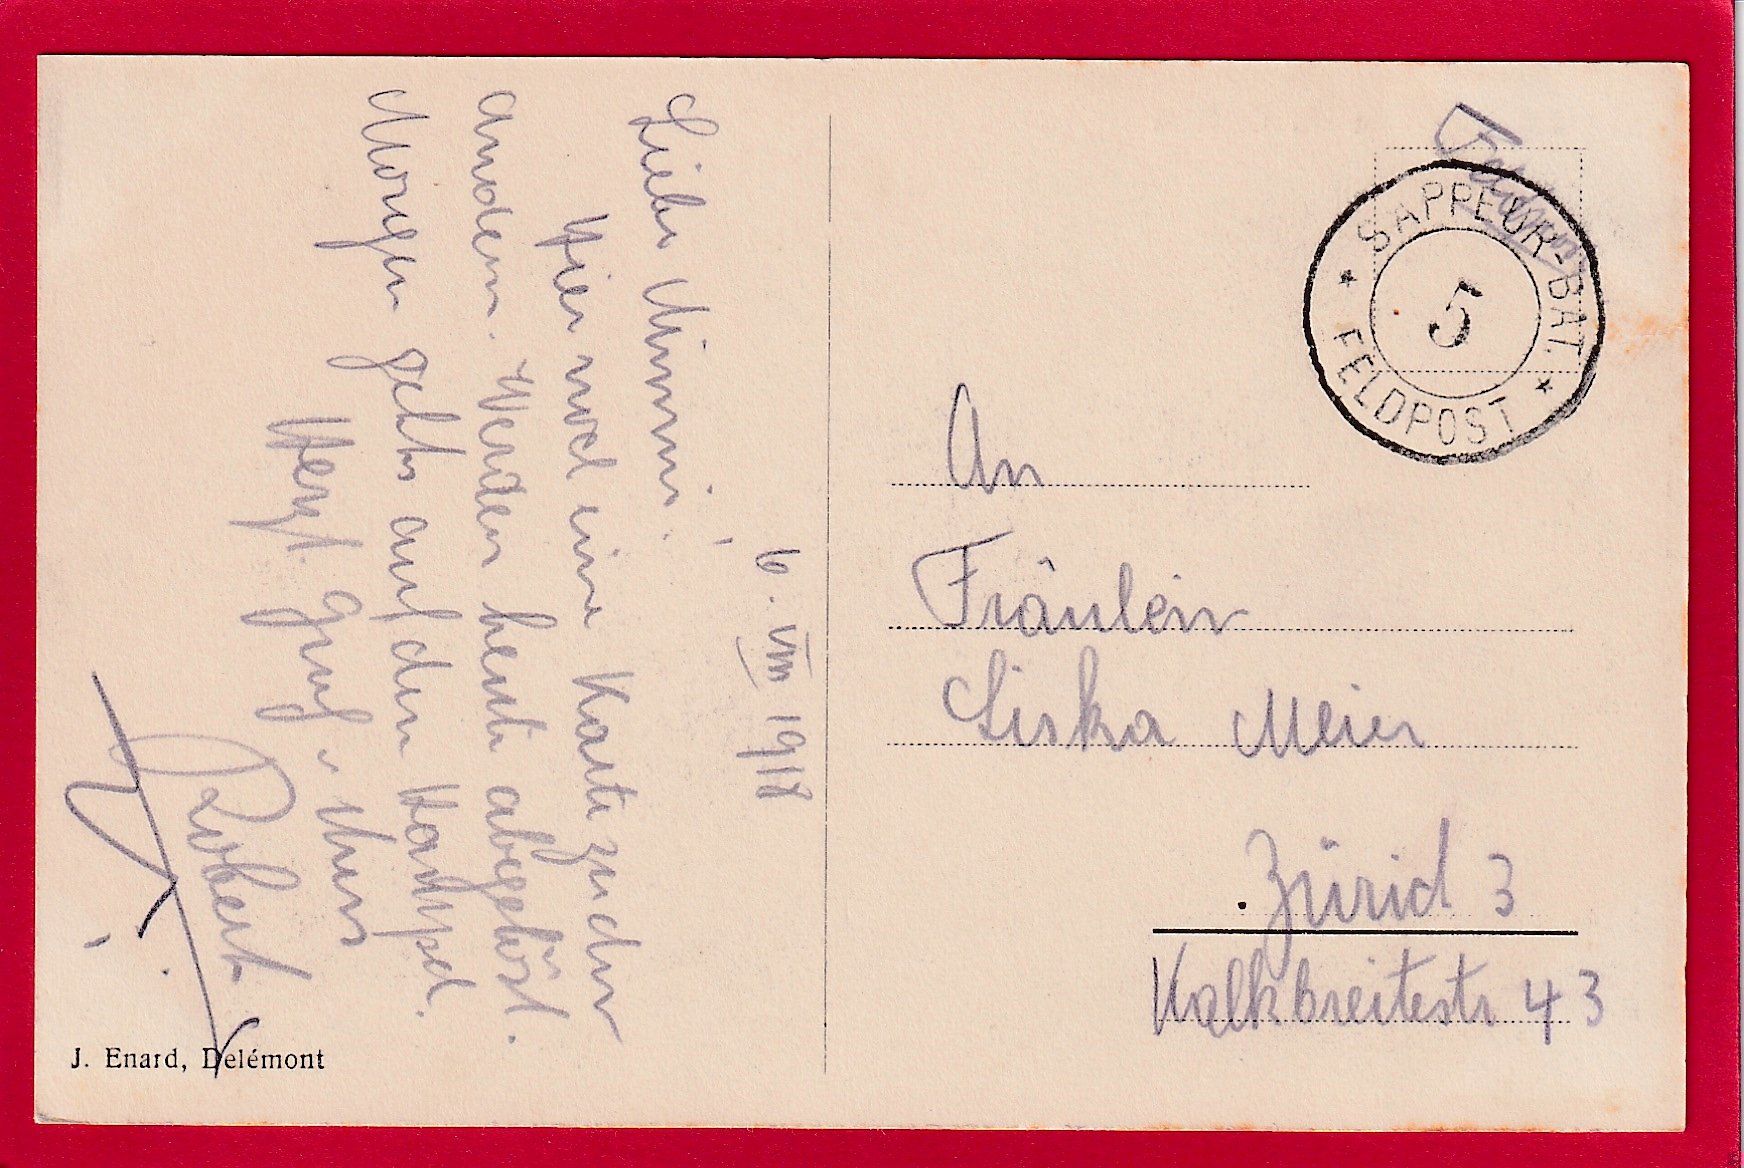 6. VIII 1918
Liebe Mimmi!
Hier noch eine Karte zu den
andern. Werden heute abgelöst.
Morgen gehts auf den
Herzl. Gruß u.
Robert
J. Enard, Delémont
Feldpost
SAPPEUR-BAT.
5
FELDPOST
An
Fräulein
Liska Meier
Zürich 3
Kalkbreitestr 43